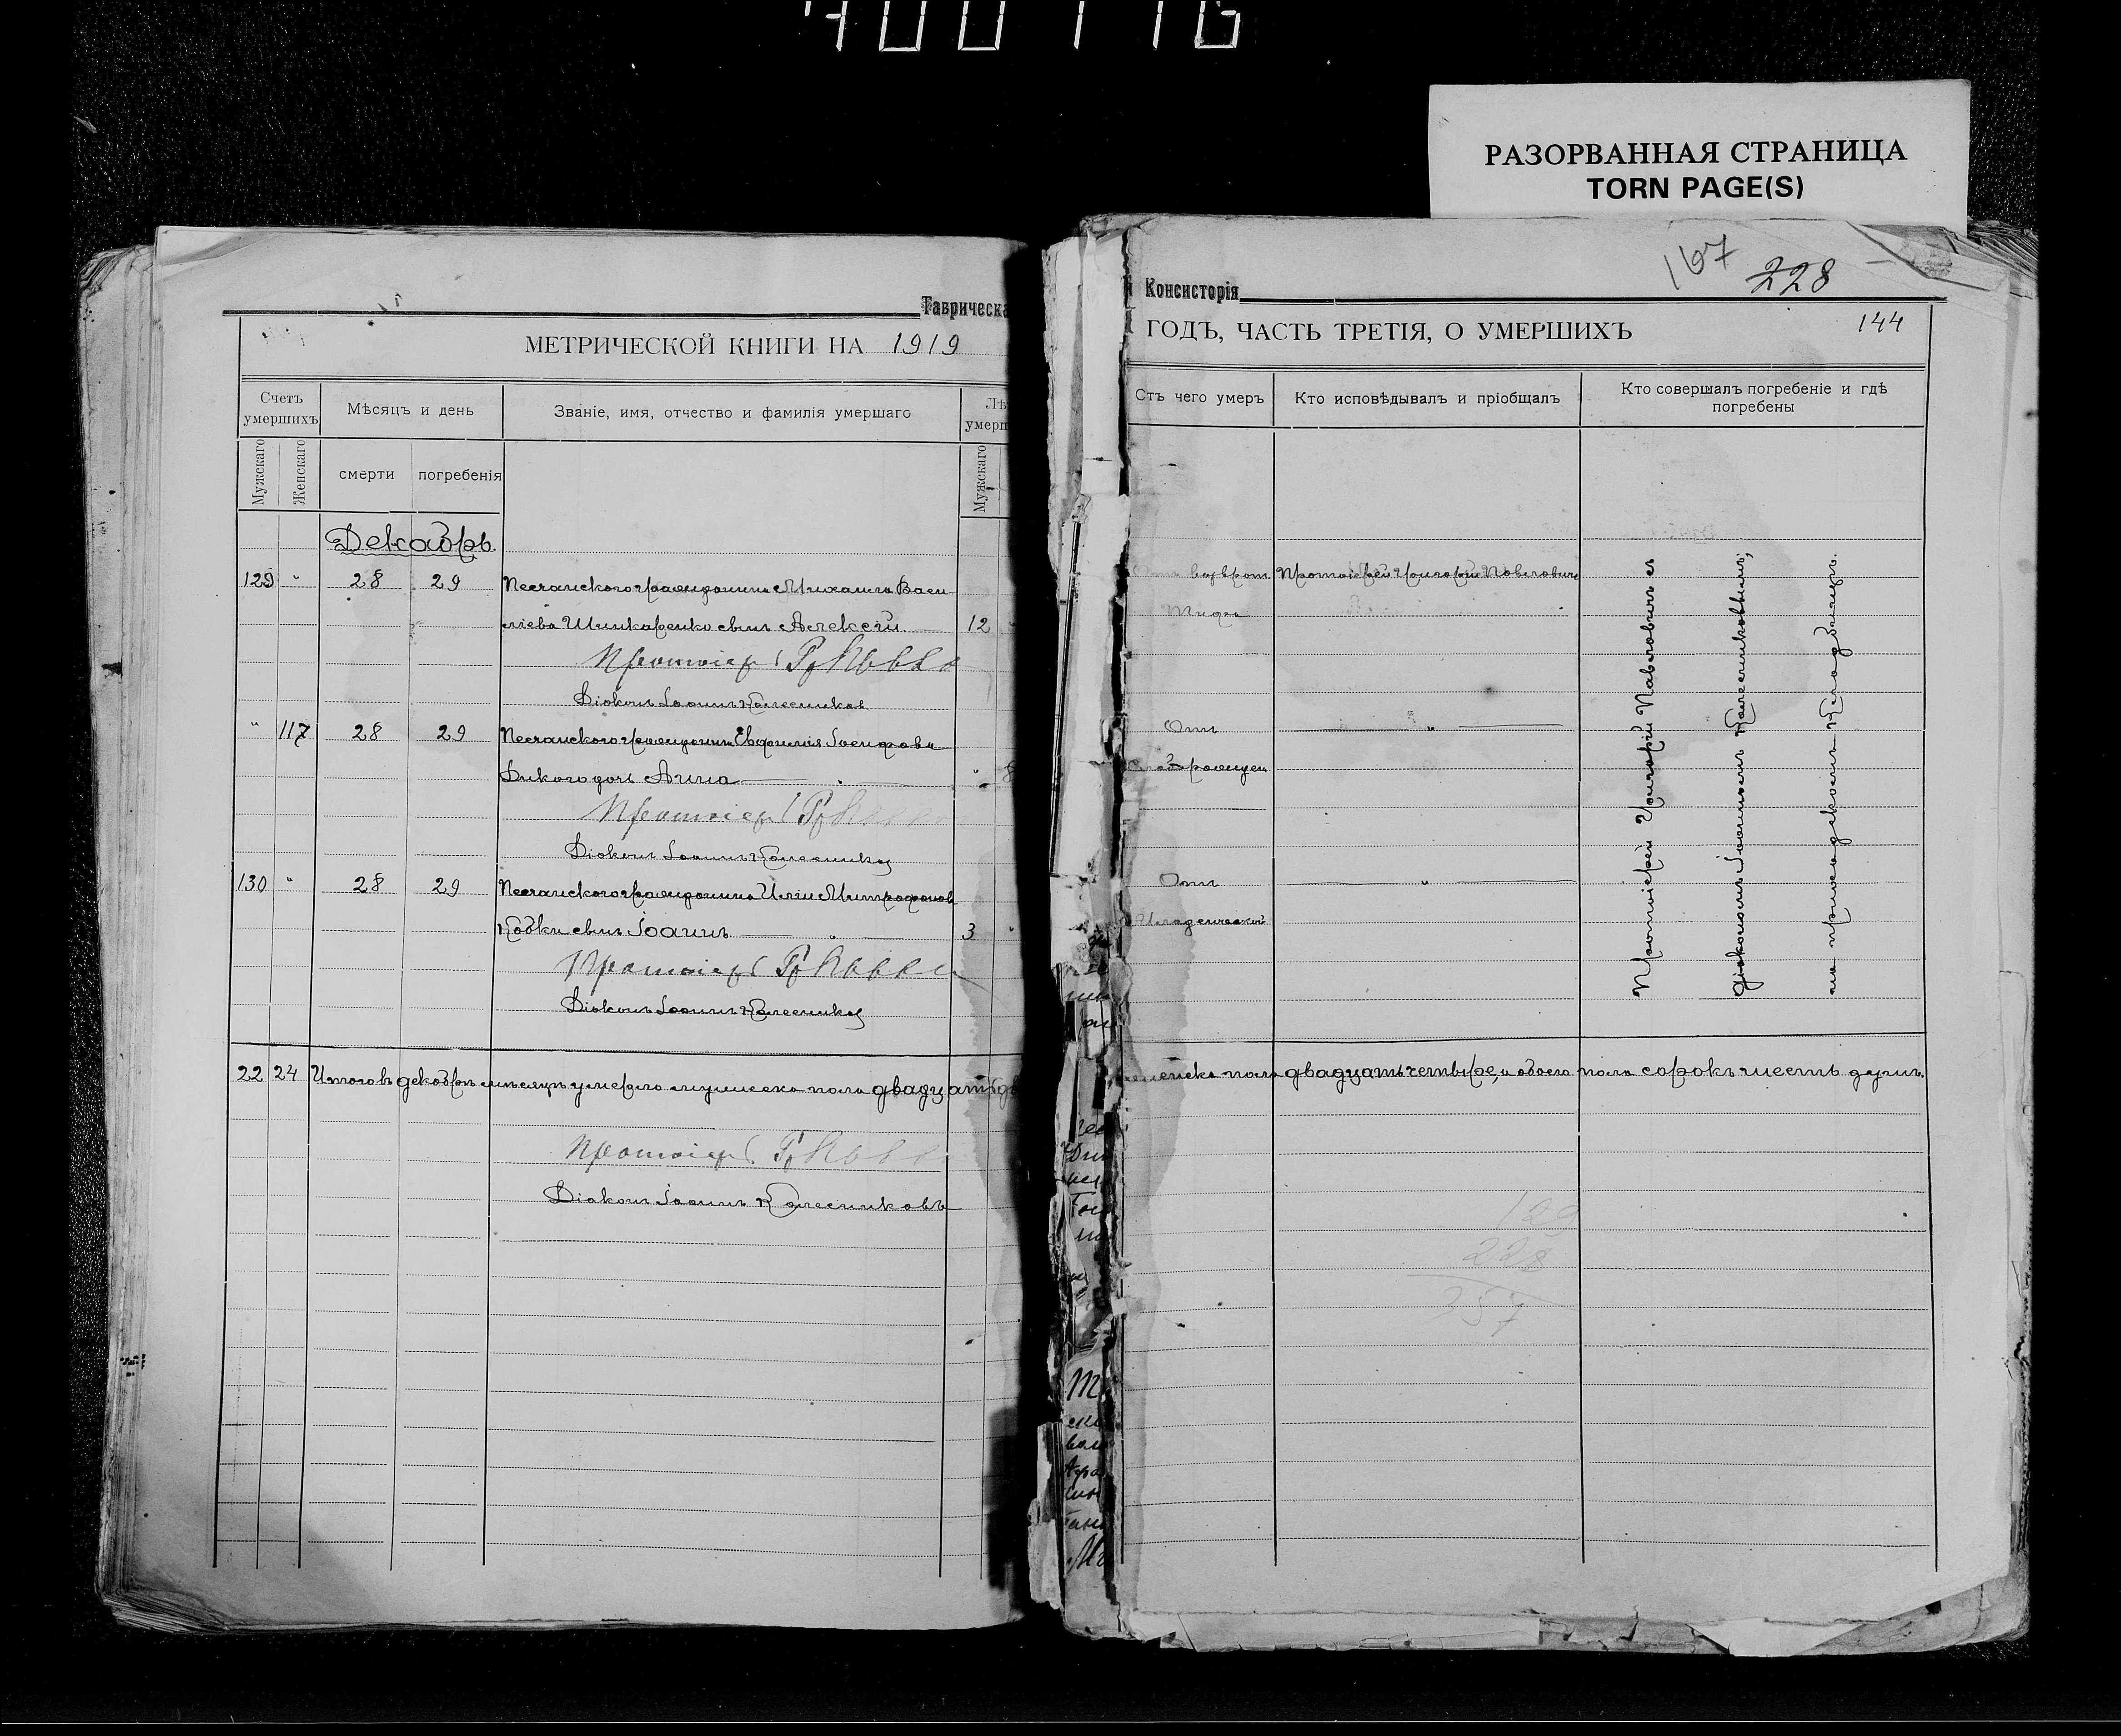 РАЗОРВАННАЯ СТРАНИЦА
TORN PAGE(S)
Таврическа
МЕТРИЧЕСКОЙ КНИГИ НА 1919
Счетъ умершихъ
Мѣсяцъ и день
Званіе, имя, отчество и фамилія умершаго
Лѣ
умерш
Мужскаго
Женскаго
смерти
погребенія
Мужскаго
Декабрь.
129 " 28 29 Песчанского гражданина Михаила Васи
лiева Шинкаренко сынъ Алексей. 12
Протоіер
Діаконъ Іоаннъ Колесников
" 117 28 29 Песчанского гражданина Евфимія Іосифова
Дикого дочь Анна " " 8
Протоіер
Діаконъ Іоаннъ Колесников
130 " 28 29 Песчанского гражданина Иліи Митрофанов
сынъ Іоаннъ " 3 "
Протоіер
Діаконъ Іоаннъ Колесников
22 24 Итого въ декабрѣ мѣсяцѣ умерло мужеска пола двадцать дв
Протоіер
Діаконъ Іоаннъ Колесниковъ
167
228
Консисторія
ГОДЪ, ЧАСТЬ ТРЕТІЯ, О УМЕРШИХЪ
144
Отъ чего умеръ
Кто исповѣдывалъ и пріобщалъ
Кто совершалъ погребеніе и гдѣ погребены
возврат. Протоіерей Григорій Павлович
Тифа
Отъ "
рожден
Отъ "
Младенческой
Протоіерей Григорій Павловичъ съ
діакономъ Іоанномъ Колесниковымъ,
на приходскомъ кладбищѣ.
женска пола двадцать четыре, а обоего пола сорокъ шесть душъ.
228
357